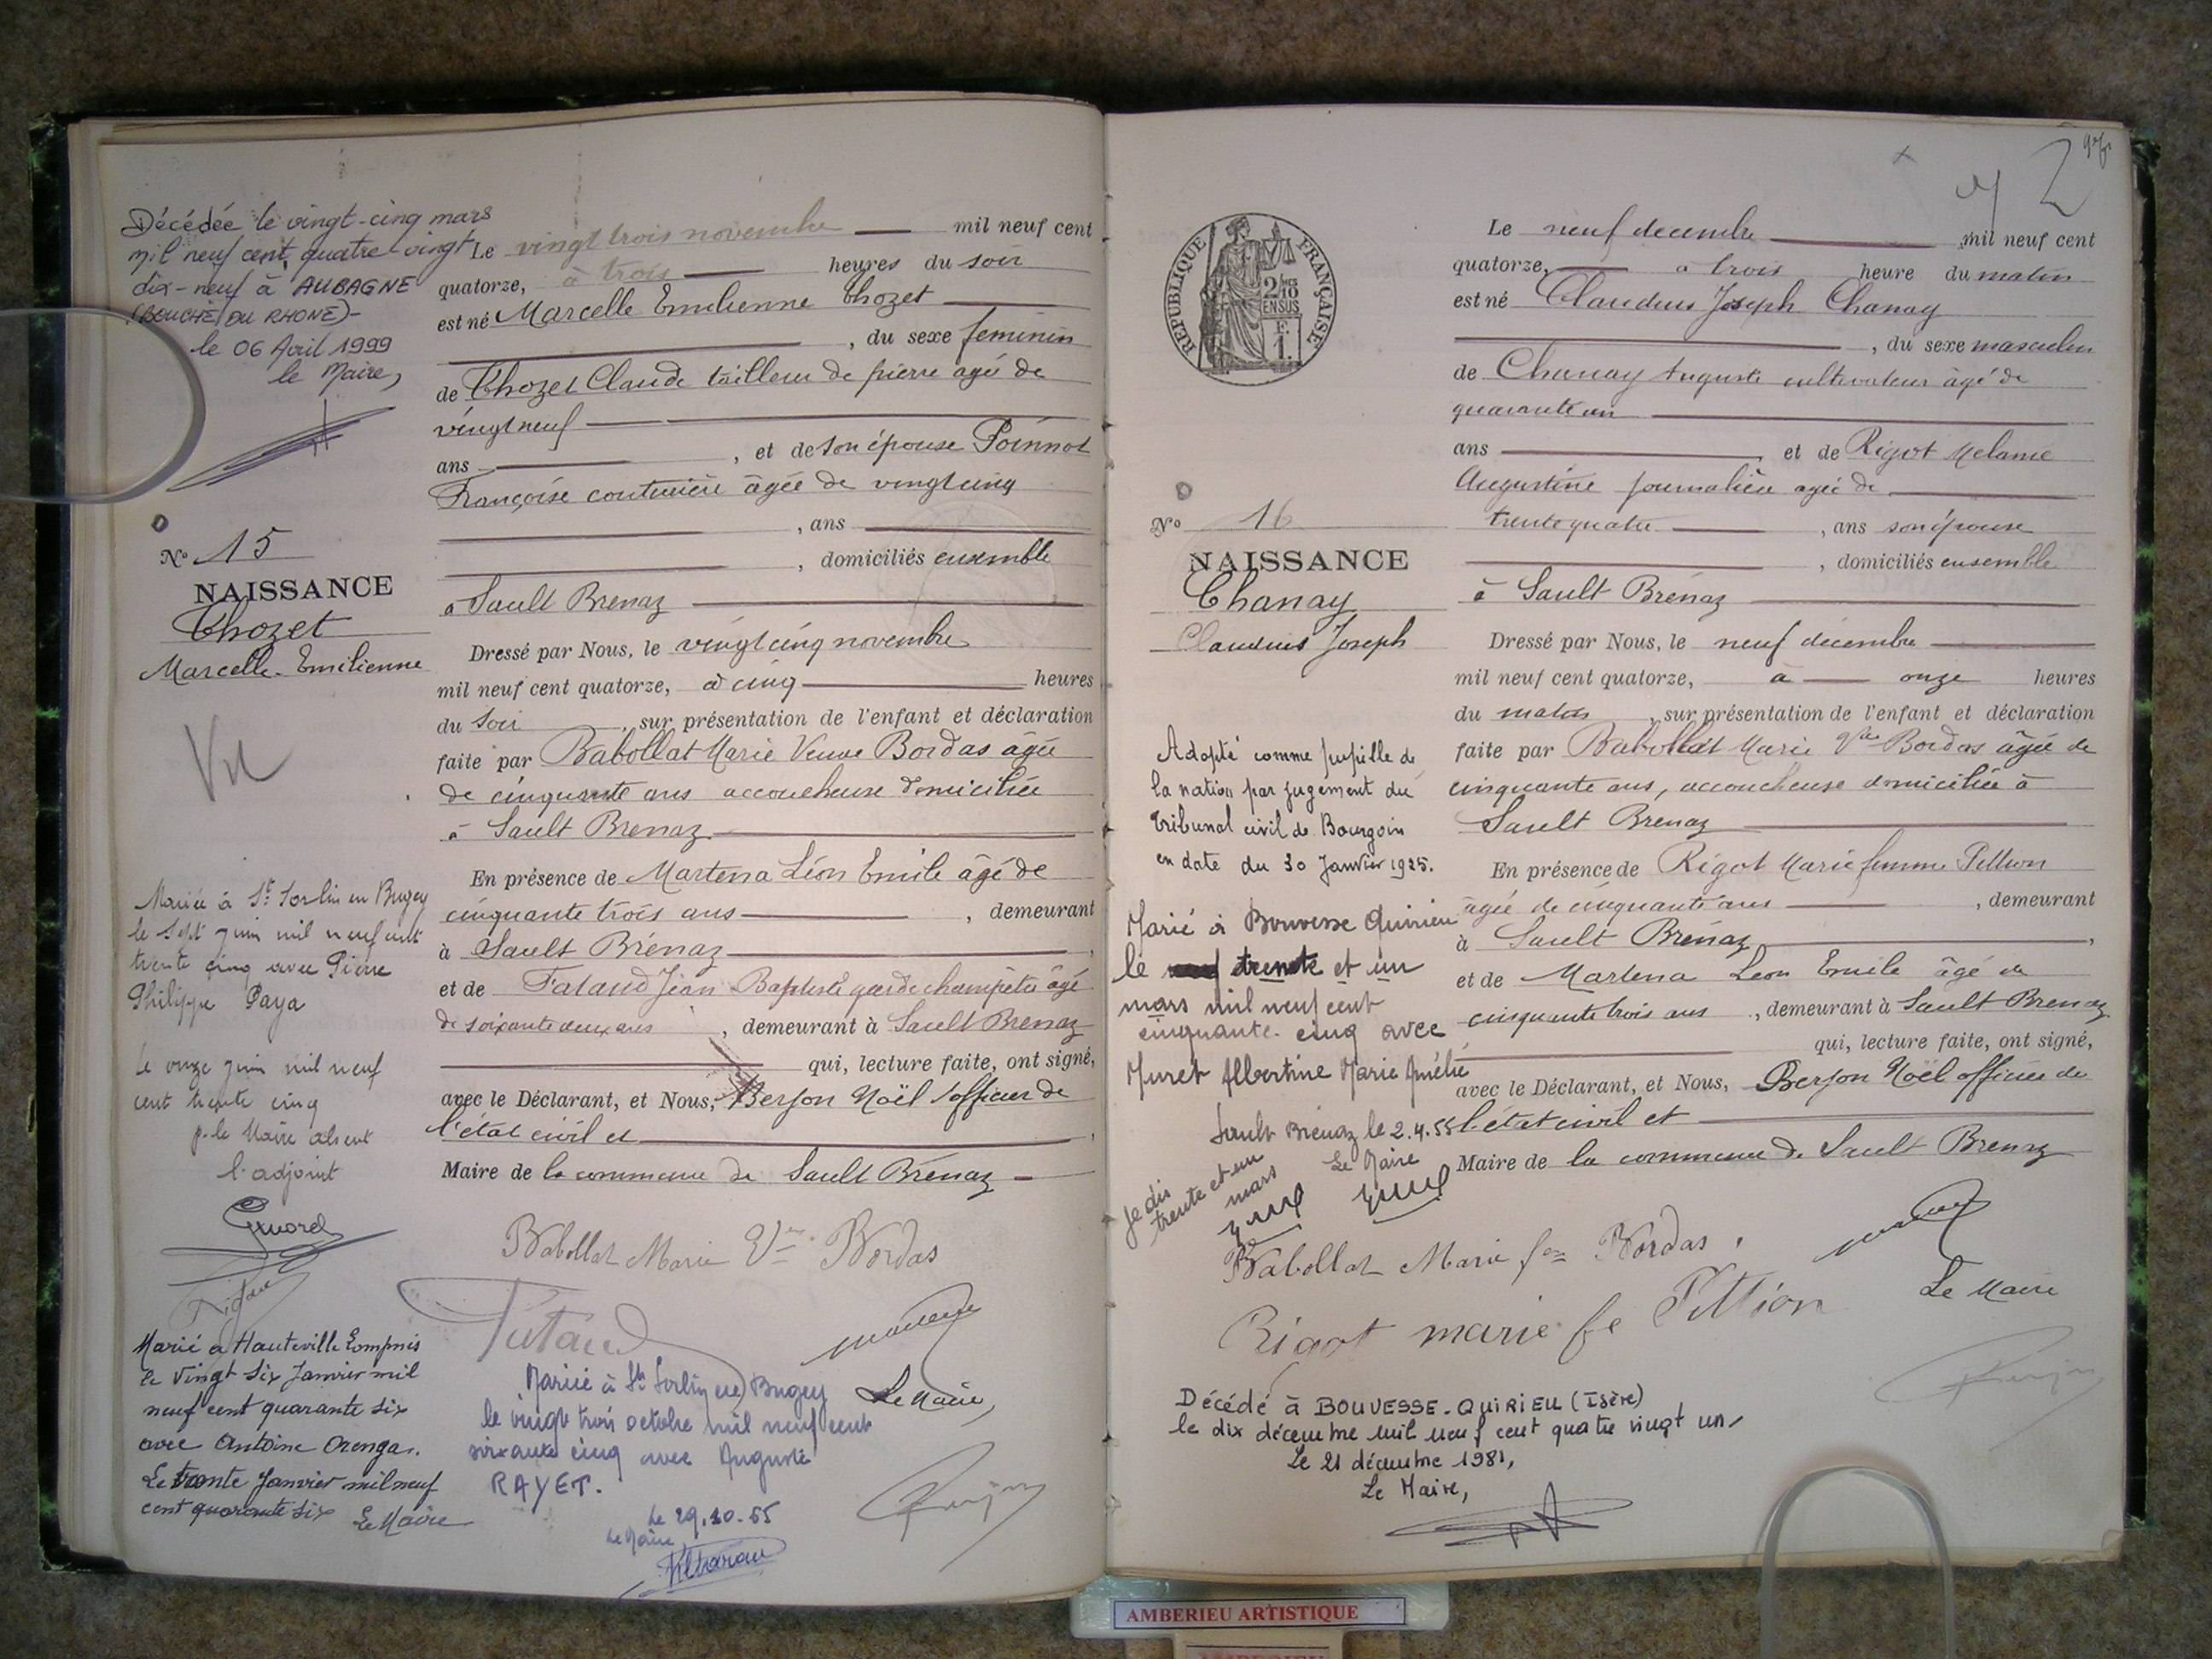 Décédée le vingt-cinq mars
mil neuf cent quatre vingt
dix-neuf à AUBAGNE
(BOUCHE DU RHONE)-
le 06 Avril 1999
le Maire,
N° 15
NAISSANCE
Chozet
Marcelle Emilienne
Vu
Mariée à St Sorlin en Bugey
le sept juin mil neuf cent
trente cinq avec Pierre
Philippe Paya
Le onze juin mil neuf
cent trente cinq
p. le Maire absent
l'adjoint
Marié a Hauteville Lompnis
le vingt six Janvier mil
neuf cent quarante six
avec Antoine Orenga.
Le trente Janvier mil neuf
cent quarante six Le Maire
Le vingt trois novembre mil neuf cent
quatorze, à trois heures du soir
est né Marcelle Emilienne Chozet
, du sexe feminin
de Chozet Claude tailleur de pierre agé de
vingt neuf
ans , et de son épouse Poinnot
Françoise couturière âgée de vingt cinq
, ans
, domiciliés ensemble
à Sault Brenaz
Dressé par Nous, le vingt cinq novembre
mil neuf cent quatorze, à cinq heures
du soir , sur présentation de l'enfant et déclaration
faite par Babollat Marie Veuve Bordas âgée
de cinquante ans accoucheuse domiciliée
à Sault Brenaz.
En présence de Martena Léon Emile âgé de
cinquante trois ans , demeurant
à Sault Brénaz ,
et de Jean Baptiste garde champêtre âgé
de soixante deux ans , demeurant à Sault Brenaz
qui, lecture faite, ont signé,
avec le Déclarant, et Nous, Berson Noël officier de
l'état civil et ,
Maire de la commune de Sault Brénaz
Babollat Marie Vve Bordas
Mariée à St Sorlin en Bugey
le vingt trois octobre mil neuf cent
soixante cinq avec Auguste
RAYET.
le 29.10.65
Le Maire
Le Maire,
2
RÉPUBLIQUE FRANÇAISE
2/10 EN SUS
F.
1.
N° 16
NAISSANCE
Chanay
Claudius Joseph
Adopté comme pupille de
la nation par jugement du
Tribunal civil de Bourgoin
en date du 30 Janvier 1925.
Marié à Bouvesse Quirieu
le trente et un
mars mil neuf cent
cinquante-cinq avec
Muret Albertine Marie Amélie
Sault Brénaz le 2.4.55
Le Maire
Je dis
trente et un
mars
Le neuf decembre mil neuf cent
quatorze, a trois heure du matin
est né Claudius Joseph Chanay
, du sexe masculin
de Chanay Auguste cultivateur âgé de
quarante un
ans , et de Rigot Melanie
Augustine journalière agée de
trente quatre , ans son épouse
, domiciliés ensemble
à Sault Brénaz
Dressé par Nous, le neuf décembre
mil neuf cent quatorze, à onze heures
du matin , sur présentation de l'enfant et déclaration
faite par Babollat Marie Vve Bordas âgée de
cinquante ans, accoucheuse domiciliée à
Sault Brenaz
En présence de Rigot Marie femme Pittion
âgée de cinquante ans , demeurant
à Sault Brénaz ,
et de Martena Leon Emile âgé de
cinquante trois ans , demeurant à Sault Brenaz
qui, lecture faite, ont signé,
avec le Déclarant, et Nous, Berson Noël officier de
l'état civil et
Maire de la commune de Sault Brenaz
Babollat Marie Bordas
Rigot marie fe Pittion
Le Maire
Décédé à BOUVESSE-QUIRIEU (Isère)
le dix décembre mil neuf cent quatre vingt un
Le 21 décembre 1981,
Le Maire,
AMBERIEU ARTISTIQUE
AMBERIEU